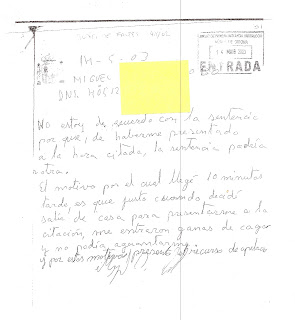 14-5-03
MIGUEL
DNI
14 MAYO 2003
ENTRADA
No estoy de acuerdo con la sentencia
porque, de haberme presentado
a la hora citada, la sentencia podría
otra.
El motivo por el cual llegé 10 minutos
tarde, es que justo cuando decidí
salir de casa para presentarme a la
citación, me entraron ganas de cagar
y no podía aguantarme.
y por estos motivos presento el recurso de apelación